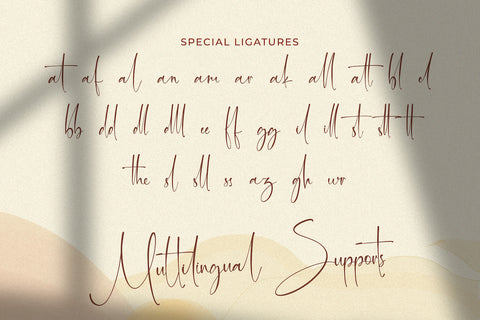 SPECIAL LIGATURES
at af al an am ar ak all att bl el
bb dd dl dll ee ff gg il ill st stt tt
the sl sll ss az gh wr
Multilingual Supports